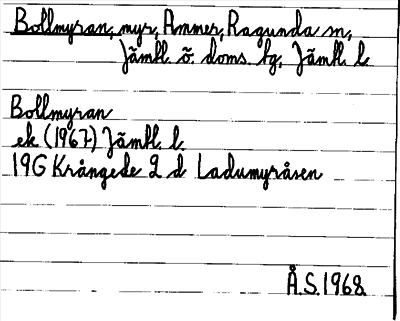 Bollmyran, myr, Ammer, Ragunda sn,
Jämtl. ö. doms. bg, Jämtl. l.
Bollmyran
ek (1967) Jämtl. l.
19G Krångede 2 d Ladumyråsen
Å.S. 1968